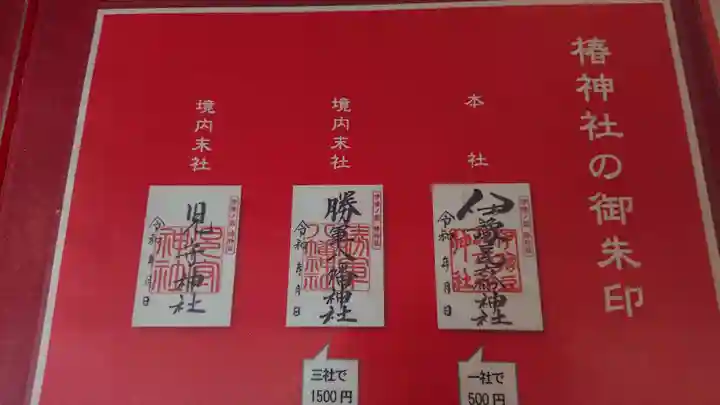 椿神社の御朱印
本社
伊豫豆比古命神社
令和 年 月 日
一社で
500円
境内末社
勝軍八幡神社
令和 年 月 日
三社で
1500円
境内末社
児守神社
令和 年 月 日